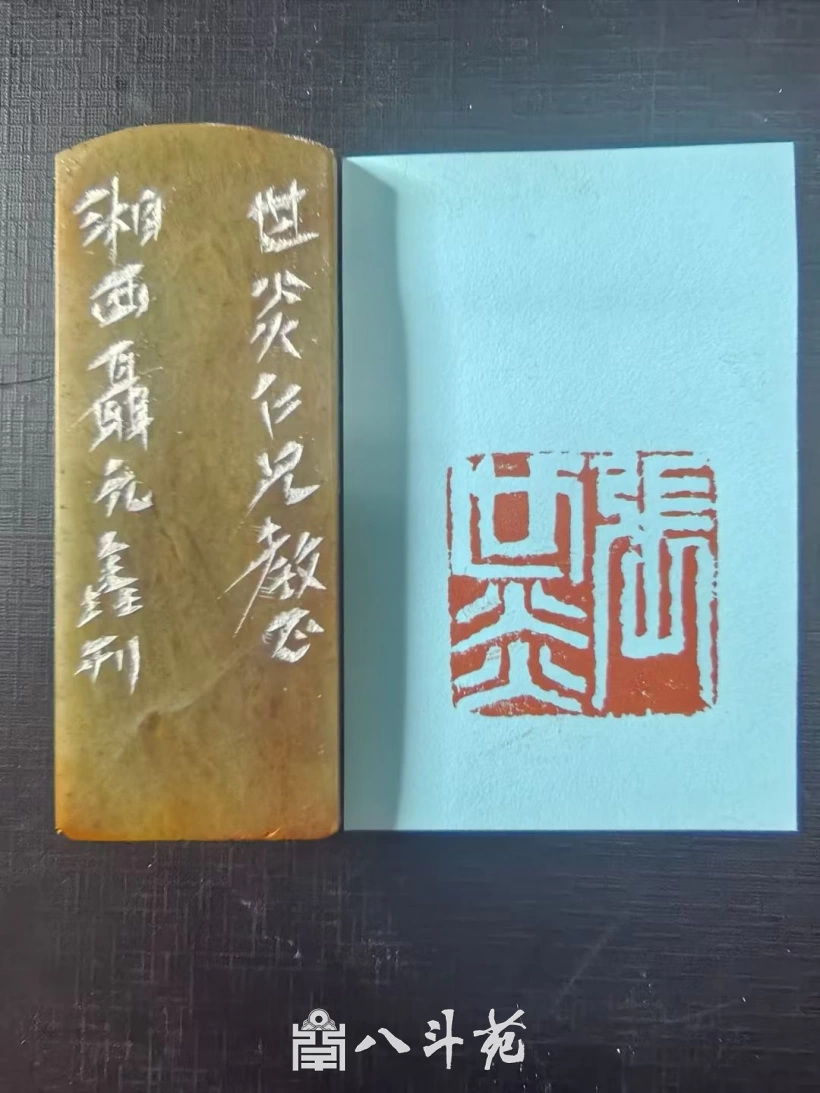 世炎仁兄教正
湘西聂元鑫刊
張世炎
八斗苑